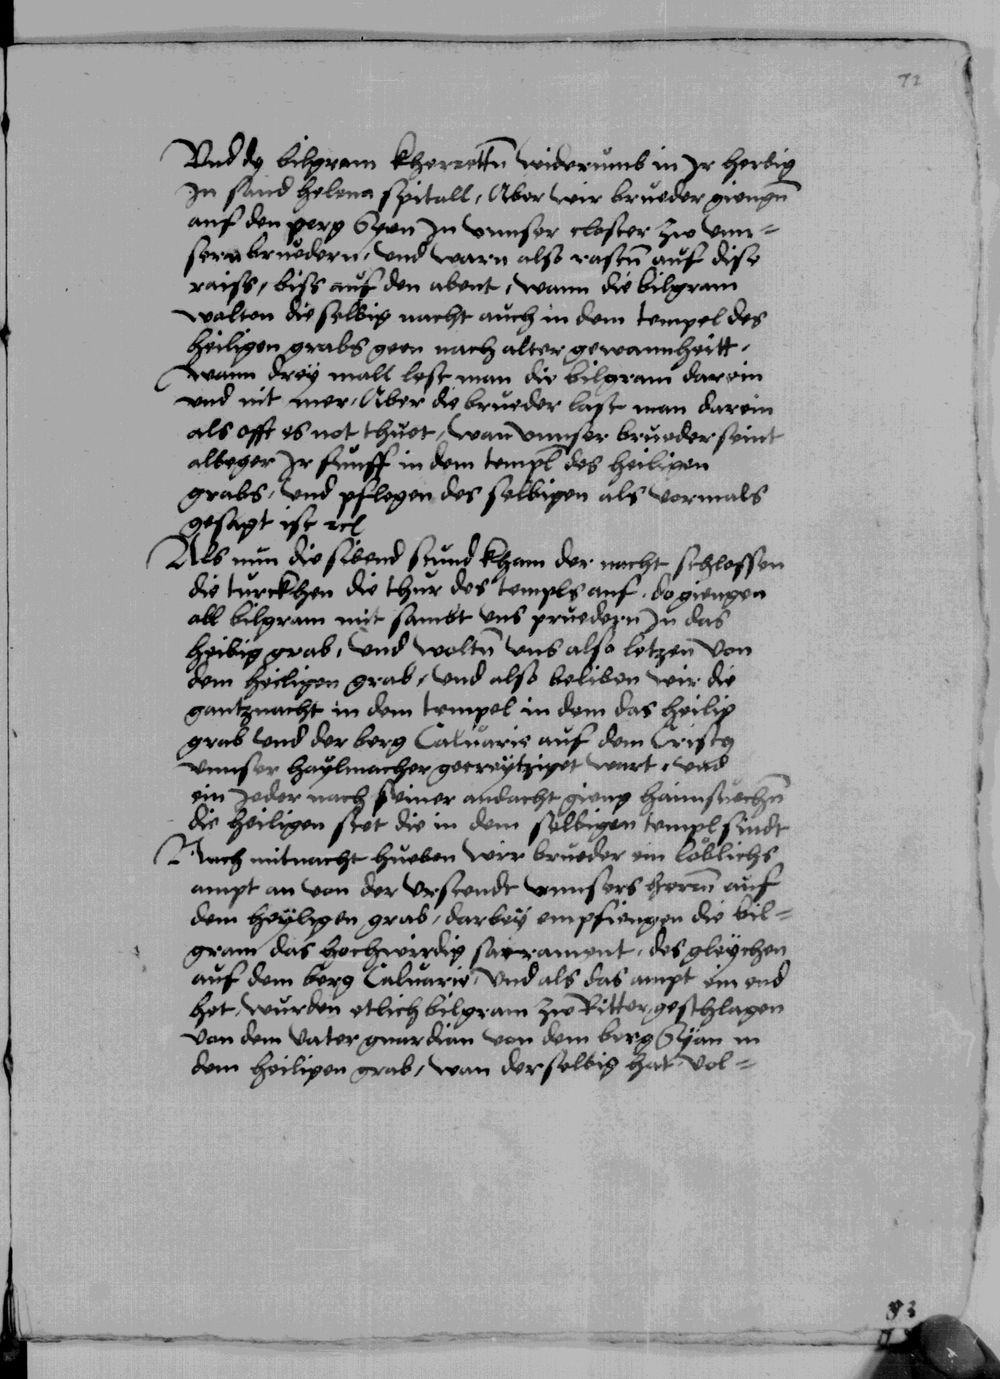 72
Vnd dy bilgram kherrettn̄ widerumb in Jr herbig
In sand helena spitall, Aber wir brueder giengn̄
auf den perg Syon Jn vnnser closter zw vnn=
sern bruedern, vnd warn also rastn̄ auf dise
raiss, biss auf den abent, wann die bilgram
wolten die selbig nacht auch in dem tempel des
heiligen grabs geen nach alter gewannheitt,
wann drey mall lest man die bilgram darein
vnd nit mer, Aber die brueder last man darein
als offt es not thuet, wan vnnser brueder seint
albeger Jr funff in dem templ des heiligen
grabs, vnd pflegen des selbigen als vormals
gesagt ist
Als nun die sibend stund kham der nacht schlossen
die turckhen die thur des templs auf, do giengen
all bilgram mit sambt vns pruedern Jn das
heilig grab, vnd woltn̄ vns also letzen von
dem heiligen grab, vnd also beliben wir die
gantz nacht in dem tempel in dem das heilig
grab vnd der berg Caluarie auf dem Cristg
vnnser haylmacher gecreytziget wart, vnd
ein Jeder nach seiner andacht gieng haimsuechn̄
die heiligen stet die in dem selbigen templ sindt
Nach mitnacht hueben wir brueder ein loblichs
ampt an von der vrstendt vnnsers herrn̄ auf
dem heyligen grab, darbey empfiengen die bil=
gram das hochwirdig sacrament, des gleychen
auf dem berg Caluarie, vnd als das ampt ein end
het, wurden etlich bilgram zw Ritter geschlagen
von dem vater guardian von dem berg Syon in
dem heiligen grab, wan der selbig hat vol=